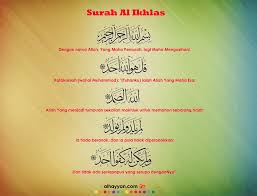 Surah Al Ikhlas
بِسْمِ اللَّهِ الرَّحْمَٰنِ الرَّحِيمِ
Dengan nama Allah, Yang Maha Pemurah, lagi Maha Mengasihani
قُلْ هُوَ اللَّهُ أَحَدٌ
Katakanlah (wahai Muhammad): "(Tuhanku) ialah Allah Yang Maha Esa:
اللَّهُ الصَّمَدُ
Allah Yang menjadi tumpuan sekalian makhluk untuk memohon sebarang hajat:
لَمْ يَلِدْ وَلَمْ يُولَدْ
Ia tiada beranak, dan Ia pula tidak diperanakkan:
وَلَمْ يَكُن لَّهُ كُفُوًا أَحَدٌ
Dan tidak ada sesiapapun yang setara denganNya
ahayyan.com